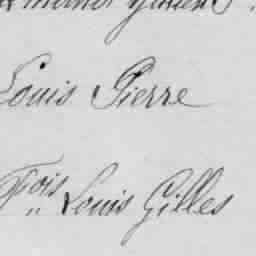 Louis Pierre
Fçois Louis Gilles